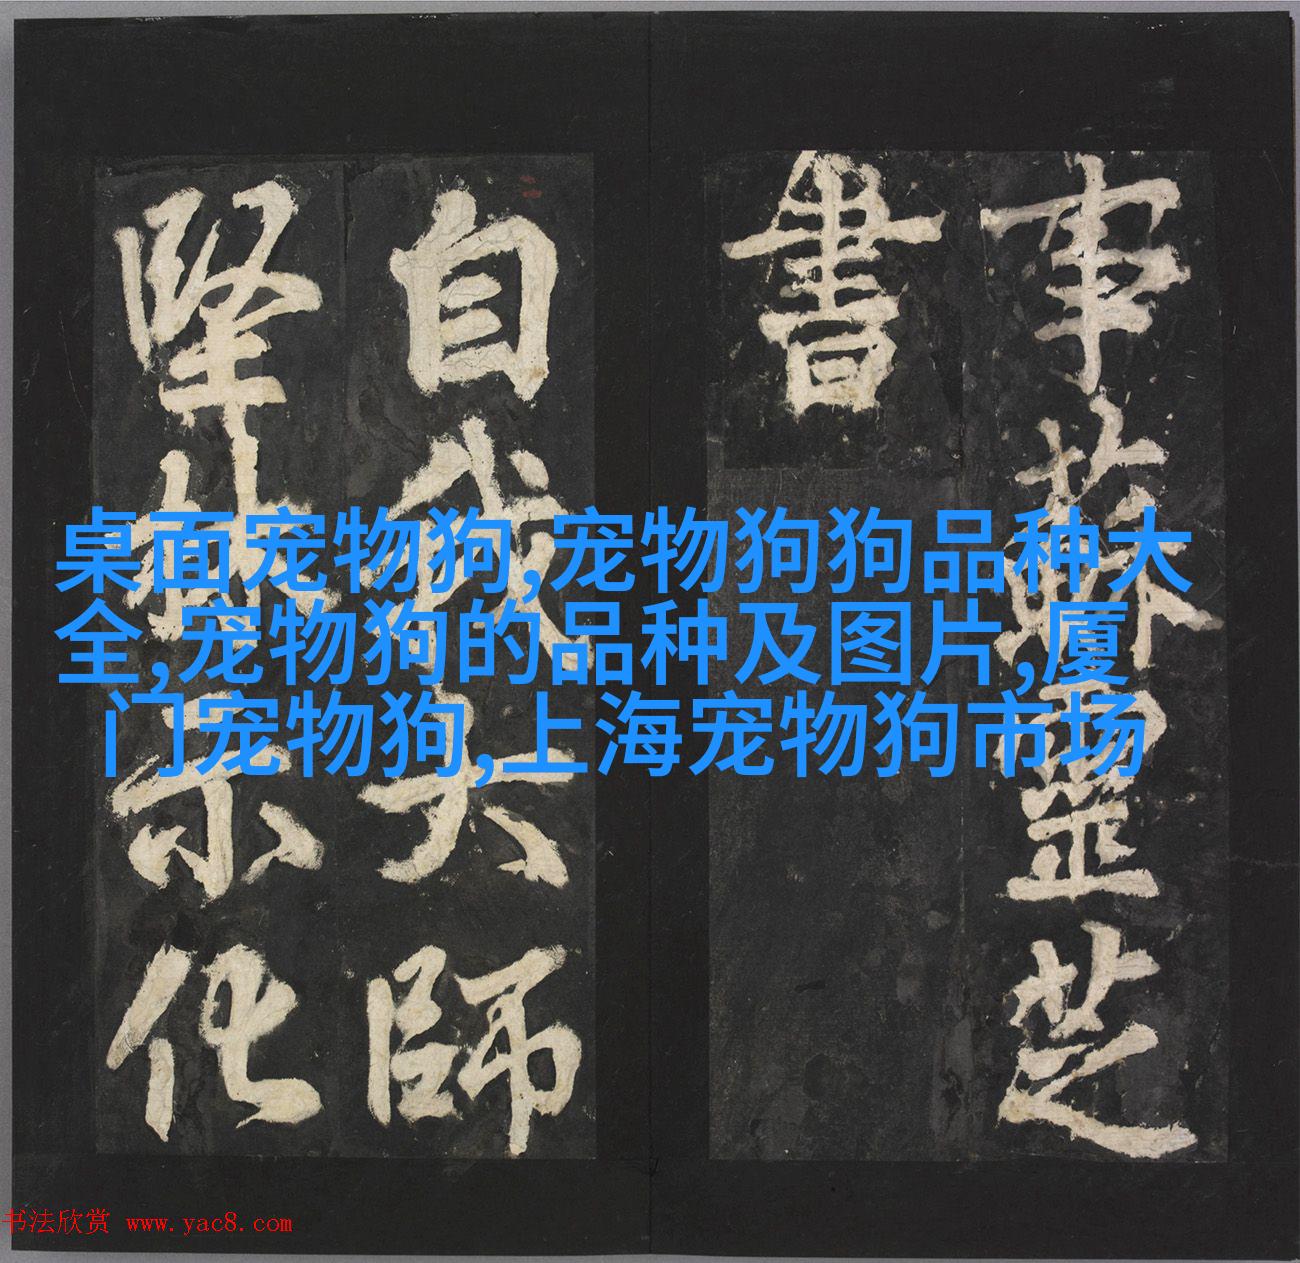 事蘇靈芝
書
自我大師
堅林示化
桌面宠物狗,宠物狗狗品种大
全,宠物狗的品种及图片,厦
门宠物狗,上海宠物狗市场
书法欣赏 www.yac8.com